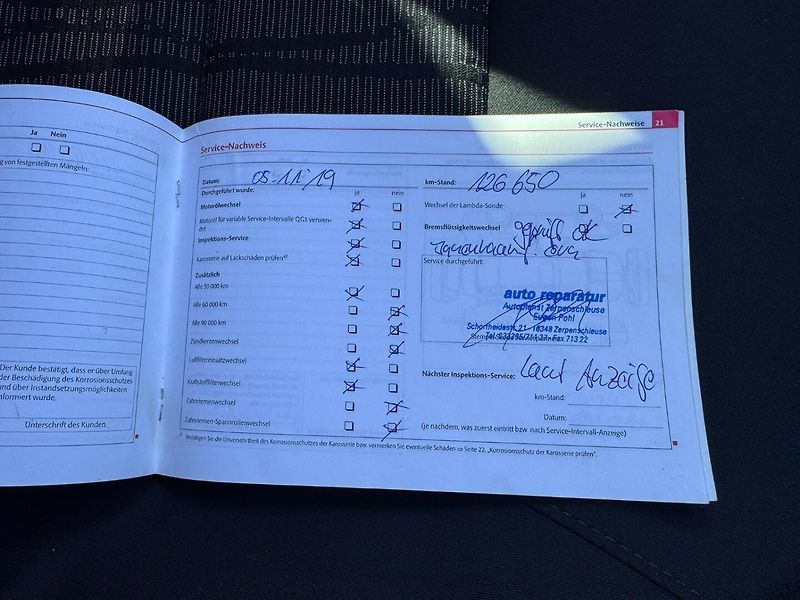 Ja Nein
ng von festgestellten Mängeln:
Der Kunde bestätigt, dass er über Umfang
der Beschädigung des Korrosionsschutzes
und über Instandsetzungsmöglichkeiten
nformiert wurde.
Unterschrift des Kunden
Service-Nachweise 21
Service-Nachweis
Datum: 05.11.19
Durchgeführt wurde: ja nein
Motorölwechsel
Motoröl für variable Service-Intervalle QG1 verwen-
det
Inspektions-Service
Karosserie auf Lackschäden prüfen
Zusätzlich
Alle 30 000 km
Alle 60 000 km
Alle 90 000 km
Zündkerzenwechsel
Luftfiltereinsatzwechsel
Kraftstofffilterwechsel
Zahnriemenwechsel
Zahnriemen-Spannrollenwechsel
km-Stand: 126 650
ja nein
Wechsel der Lambda-Sonde
Bremsflüssigkeitswechsel geprüft OK
Service durchgeführt:
auto reparatur
Autodienst Zerpenschleuse
Eugen Pohl
Schorfheidestr. 21 - 16348 Zerpenschleuse
Tel. 033395/71137 - Fax 71322
Nächster Inspektions-Service: laut Anzeige
km-Stand:
Datum:
(je nachdem, was zuerst eintritt bzw. nach Service-Intervall-Anzeige)
Bestätigen Sie die Unversehrtheit des Korrosionsschutzes der Karosserie bzw. vermerken Sie eventuelle Schäden ⇒ Seite 22, „Korrosionsschutz der Karosserie prüfen".